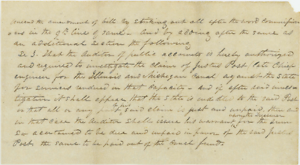 amend the amendment of bill by striking out all after the word commissioners
in the 9th line of Section and by adding after the same as
an additional section the following
Sec 3. That the Auditor of public accounts is hereby authorised
and required to investigate the claim of Justus Post late Chief
engineer for the Illinois and Michigan Canal against the State
for services rendered in that capacity and if after such investi-
gation it shall appear that the State is indebted to the said Post
or that all or any part of said claim is just and unpaid, then and
in that case the Auditor shall issue his warrant for the same
so ascertained to be due and unpaid in favor of the said Justus
Post, the same to be paid out of the canal fund.